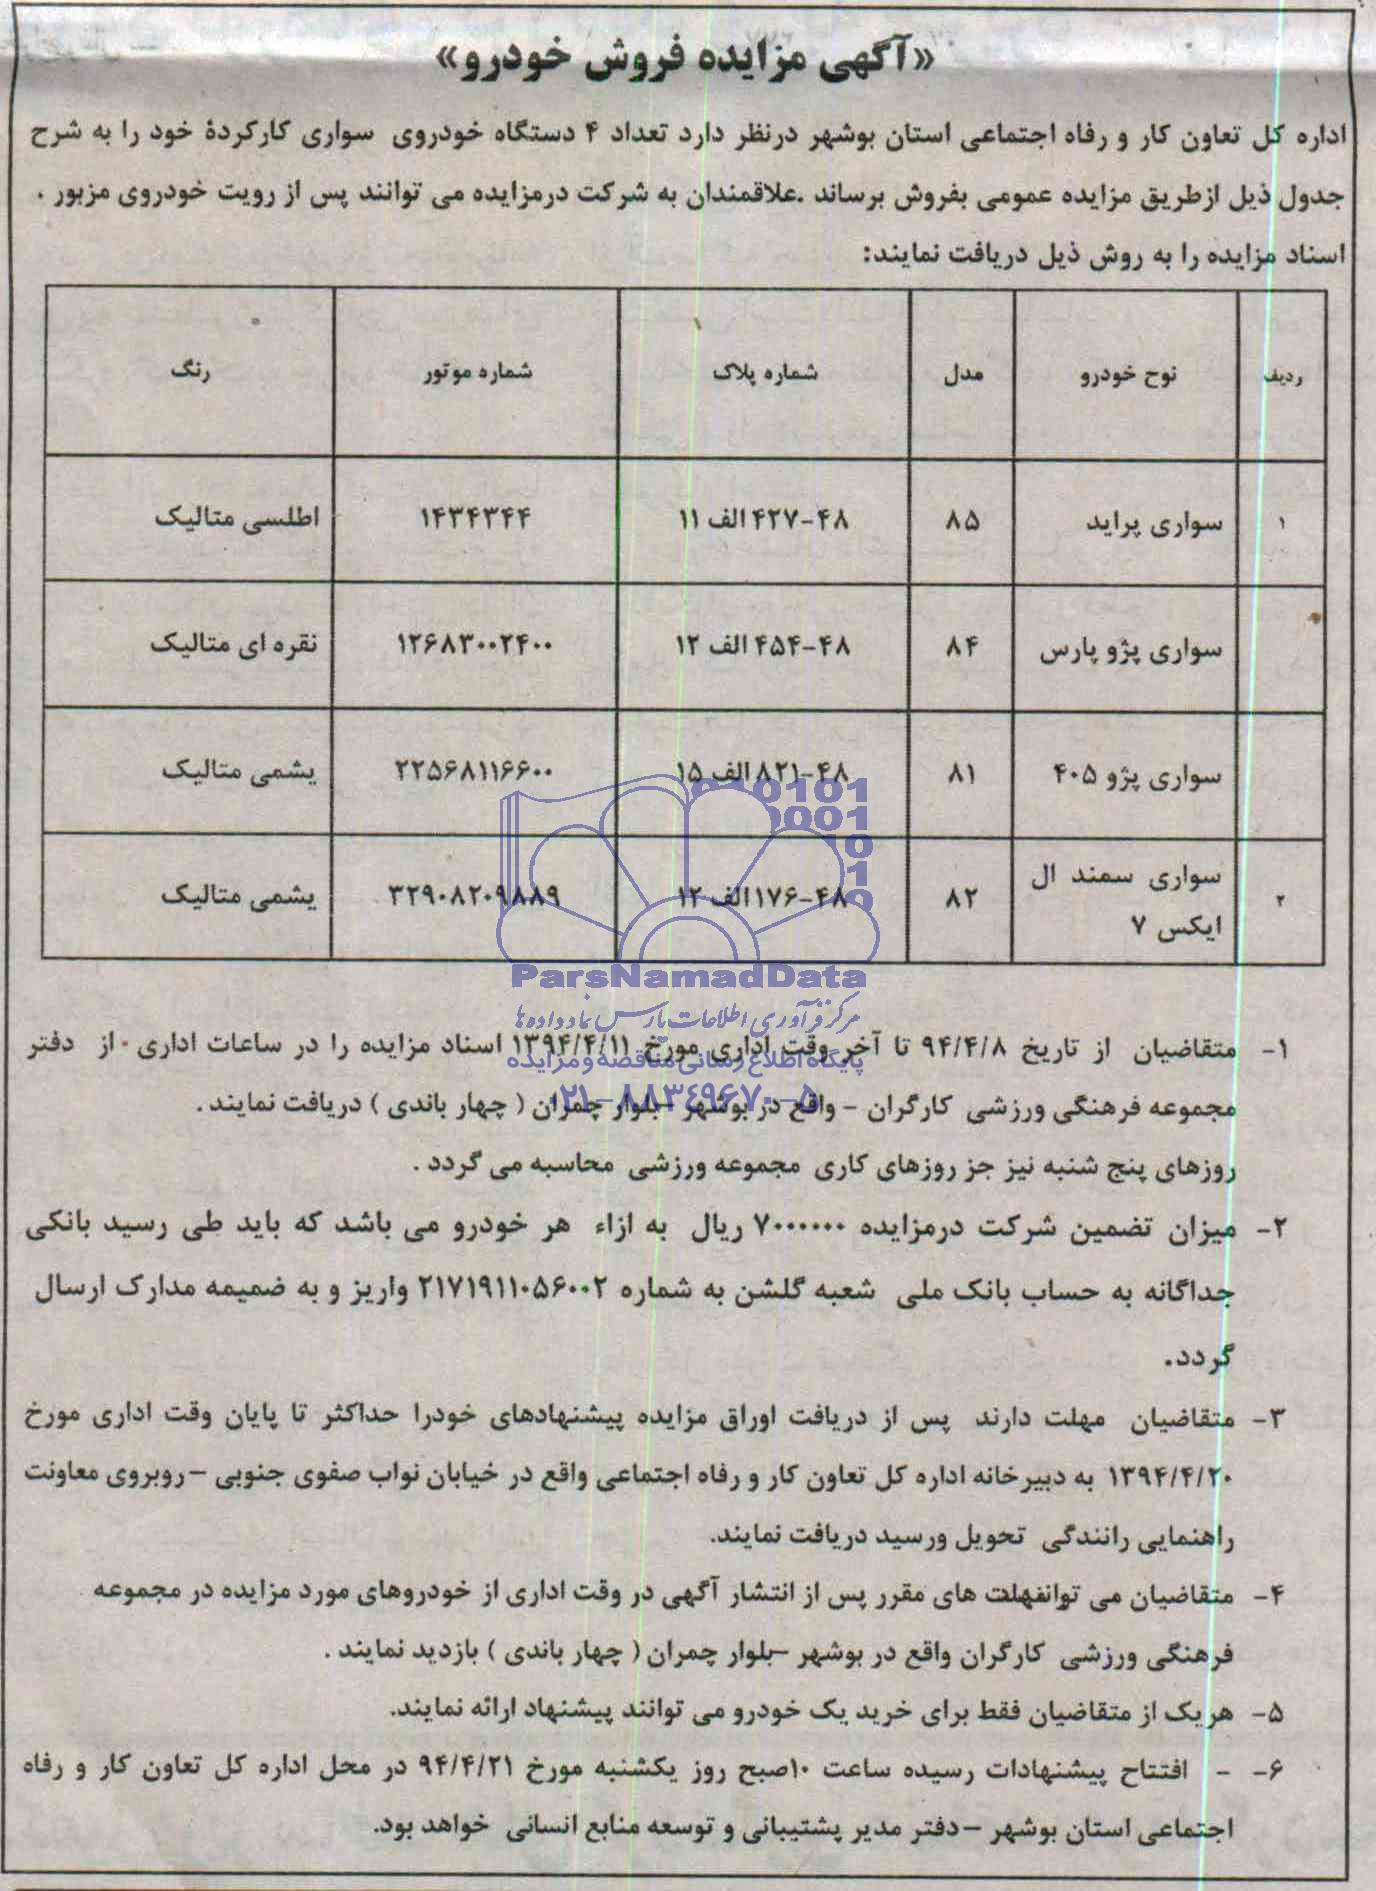 «آگهی مزایده فروش خودرو»
اداره کل تعاون کار و رفاه اجتماعی استان بوشهر درنظر دارد تعداد ۴ دستگاه خودروی سواری کارکردۀ خود را به شرح
جدول ذیل ازطریق مزایده عمومی بفروش برساند .علاقمندان به شرکت درمزایده می توانند پس از رویت خودروی مزبور .
اسناد مزایده را به روش ذیل دریافت نمایند:
ردیف نوح خودرو مدل شماره پلاک شماره موتور رنگ
۱ سواری پراید ۸۵ ۴۸-۴۲۷ الف ۱۱ ۱۴۳۴۳۴۴ اطلسی متالیک
سواری پژو پارس ۸۴ ۴۸-۴۵۴ الف ۱۲ ۱۲۶۸۳۰۰۲۴۰۰ نقره ای متالیک
سواری پژو ۴۰۵ ۸۱ ۴۸-۸۲۱ الف ۱۵ ۲۲۵۶۸۱۱۶۶۰۰ یشمی متالیک
۲ سواری سمند ال ۸۲ ۴۸-۱۷۶ الف ۱۲ ۳۲۹۰۸۲۰۹۸۸۹ یشمی متالیک
ایکس ۷
010101
0001
10
1
0
ParsNamadData
مرکز فرآوری اطلاعات پارس نماد داده ها
پایگاه اطلاع رسانی مناقصه و مزایده
۰۲۱-۸۸۳۴۹۶۷۰-۵
۱- متقاضیان از تاریخ ۹۴/۴/۸ تا آخر وقت اداری مورخ ۱۳۹۴/۴/۱۱ اسناد مزایده را در ساعات اداری از دفتر
مجموعه فرهنگی ورزشی کارگران – واقع در بوشهر –بلوار چمران ( چهار باندی ) دریافت نمایند .
روزهای پنج شنبه نیز جز روزهای کاری مجموعه ورزشی محاسبه می گردد .
۲- میزان تضمین شرکت درمزایده ۷۰۰۰۰۰۰ ریال به ازاء هر خودرو می باشد که باید طی رسید بانکی
جداگانه به حساب بانک ملی شعبه گلشن به شماره ۲۱۷۱۹۱۱۰۵۶۰۰۲ واریز و به ضمیمه مدارک ارسال
گردد.
۳- متقاضیان مهلت دارند پس از دریافت اوراق مزایده پیشنهادهای خودرا حداکثر تا پایان وقت اداری مورخ
۱۳۹۴/۴/۲۰ به دبیرخانه اداره کل تعاون کار و رفاه اجتماعی واقع در خیابان نواب صفوی جنوبی –روبروی معاونت
راهنمایی رانندگی تحویل ورسید دریافت نمایند.
۴- متقاضیان می های مقرر پس از انتشار آگهی در وقت اداری از خودروهای مورد مزایده در مجموعه
فرهنگی ورزشی کارگران واقع در بوشهر –بلوار چمران ( چهار باندی ) بازدید نمایند .
۵- هریک از متقاضیان فقط برای خرید یک خودرو می توانند پیشنهاد ارائه نمایند.
۶- - افتتاح پیشنهادات رسیده ساعت ۱۰صبح روز یکشنبه مورخ ۹۴/۴/۲۱ در محل اداره کل تعاون کار و رفاه
اجتماعی استان بوشهر –دفتر مدیر پشتیبانی و توسعه منابع انسانی خواهد بود.